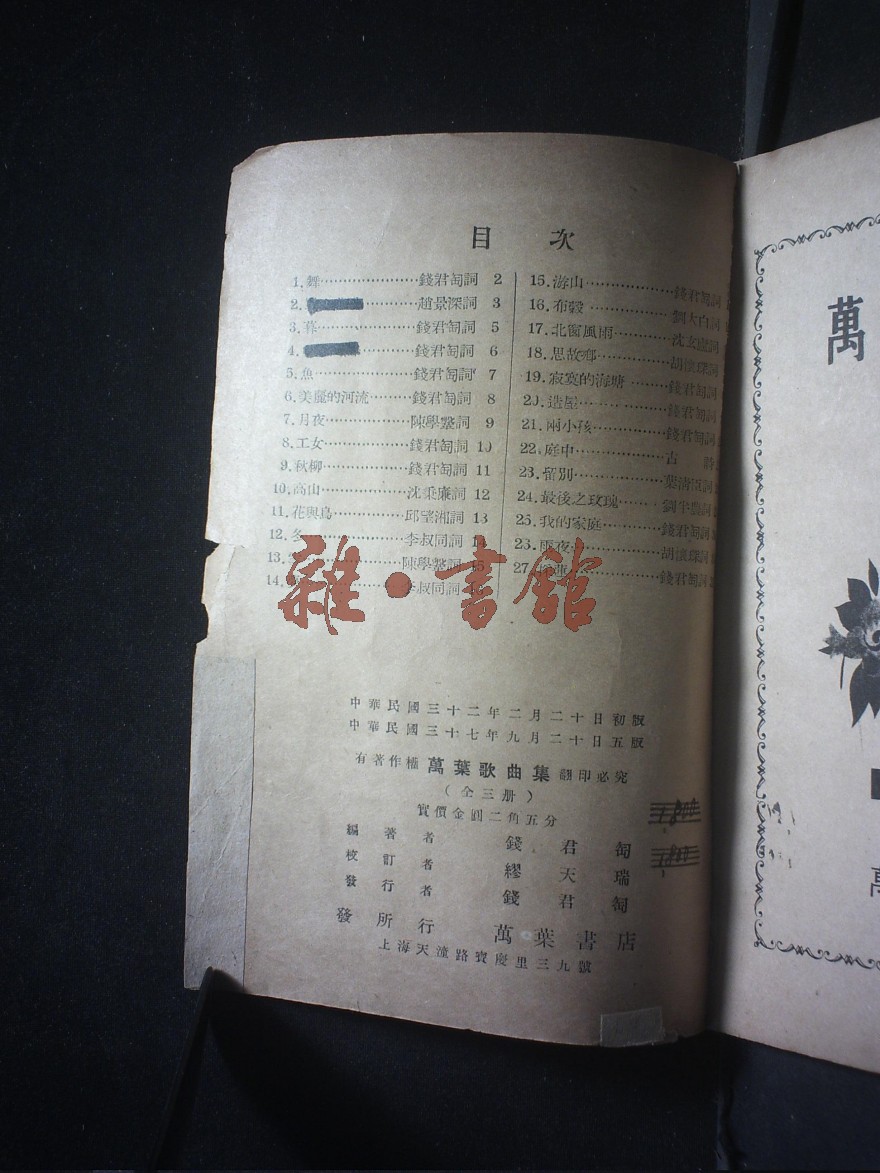 目次
1.舞……錢君匋詞 2
2.……趙景深詞 3
3.暮……錢君匋詞 5
4.……錢君匋詞 6
5.魚……錢君匋詞 7
6.美麗的河流……錢君匋詞 8
7.月夜……陳學鼇詞 9
8.工女……錢君匋詞 10
9.秋柳……錢君匋詞 11
10.高山……沈秉廉詞 12
11.花與鳥……邱望湘詞 13
12.冬……李叔同詞 14
13.……陳學鼇詞 15
14.……李叔同詞
15.游山……錢君匋詞
16.布穀……劉大白詞
17.北窗風雨……沈玄廬詞
18.思故鄉……胡懷琛詞
19.寂寞的海塘……錢君匋詞
20.造屋……錢君匋詞
21.兩小孩……錢君匋詞
22.庭中……古詩
23.留別……葉清濱詞
24.最後之玫瑰……劉半農詞
25.我的家庭……錢君匋詞
23.雨夜……胡懷琛詞
27.……錢君匋詞
雜·書館
中華民國三十二年二月二十日初版
中華民國三十七年九月二十日五版
有著作權 萬葉歌曲集 翻印必究
（全三册）
實價金圓二角五分
編著者 錢君匋
校訂者 繆天瑞
發行者 錢君匋
發所行 萬葉書店
上海天潼路寶慶里三九號
萬
萬